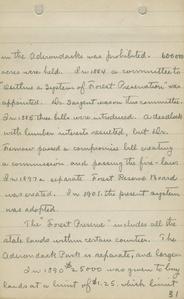 in the Adirondacks was prohibited. 600000
acres were held. In 1884 a committee to
"Outline a System of Forest Preservation" was
appointed. Dr. Sargent was on this committee.
In 1885 three bills were introduced. A deadlock
with lumber interest resulted, but Dr.
Fernow passed a compromise bill creating
a commission and passing the fire-laws.
In 1897 a separate Forest Reserve Board
was created. In 1901 the present system
was adopted.
The "Forest Preserve" includes all the
state lands within certain counties. The
Adirondack Park is separate, and larger.
In 1890 $25000 was given to buy
lands at a limit of $1.25, which limit